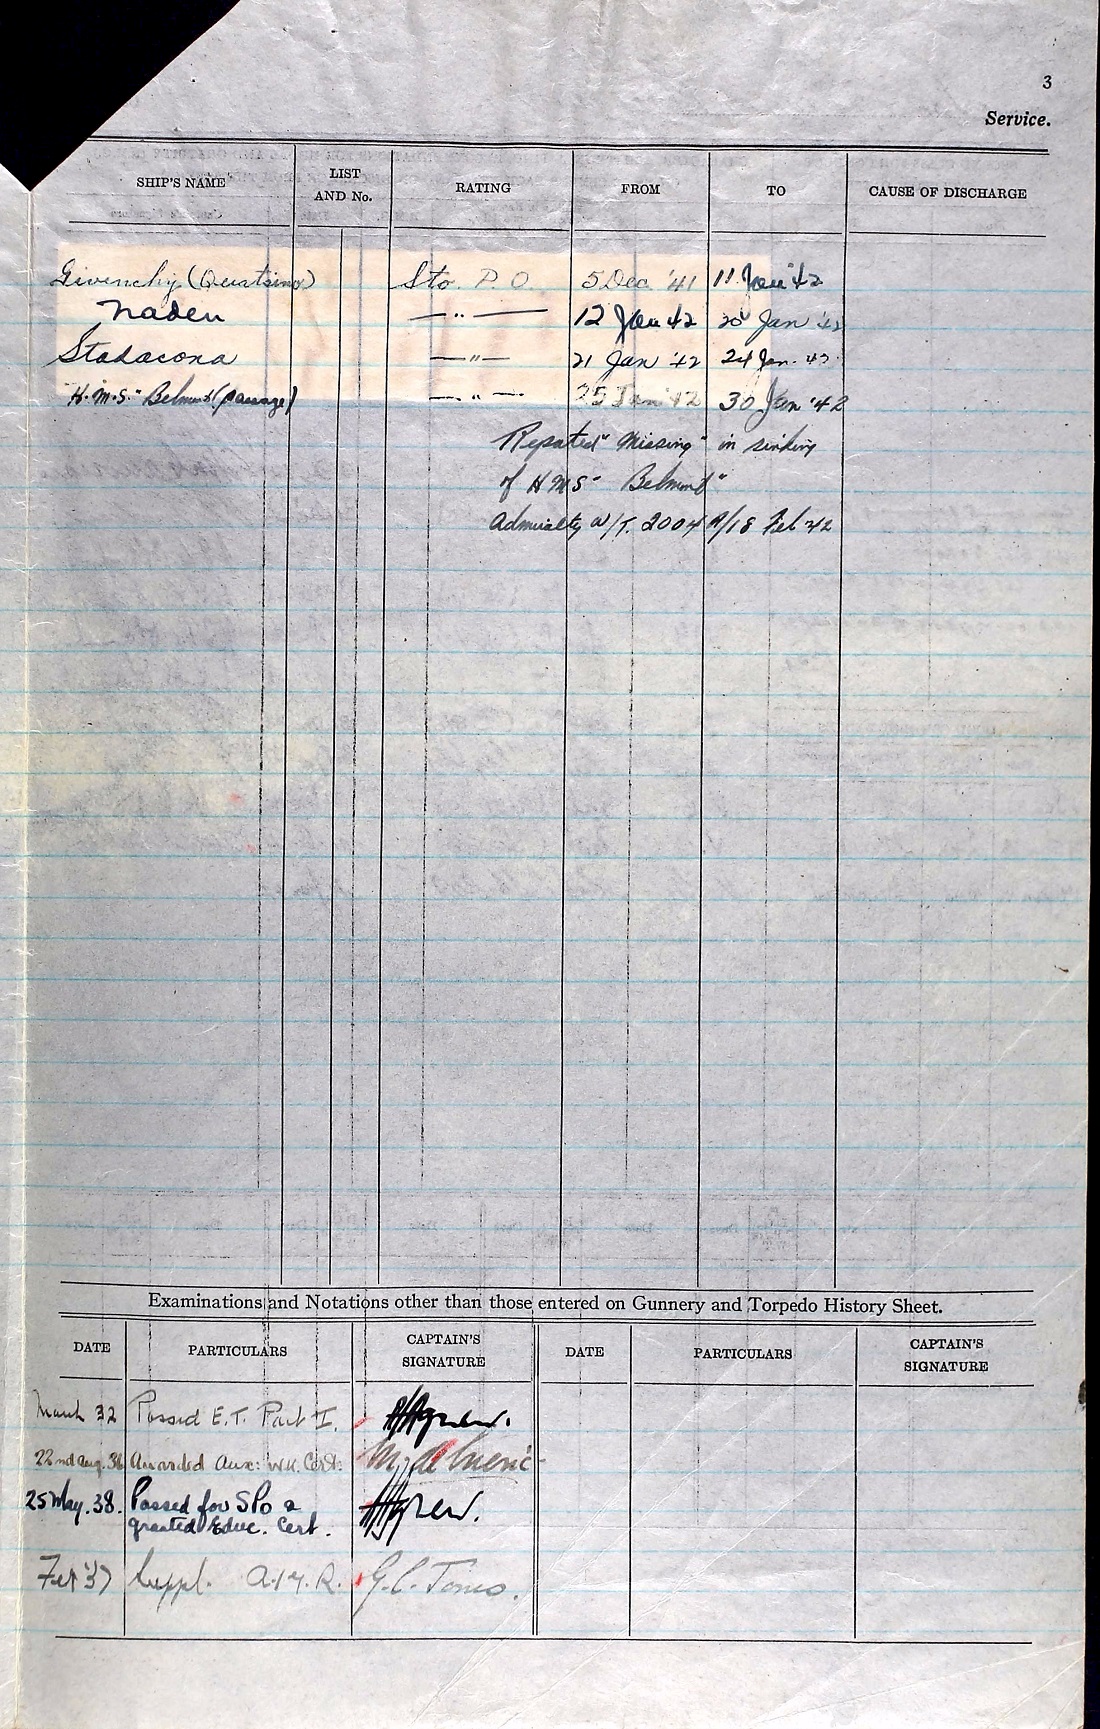 3
Service.
SHIP'S NAME LIST AND No. RATING FROM TO CAUSE OF DISCHARGE
Givenchy (Quatsino) Sto. P.O. 5 Dec '41 11 Jan '42
Naden —"— 12 Jan 42 20 Jan '42
Stadacona —"— 21 Jan '42 24 Jan. 42.
H.M.S. "Belmont (passage) —"— 25 Jan '42 30 Jan '42
Reported "Missing" in sinking
of HMS "Belmont"
Admiralty W/T. 2004 A/18 Feb 42
Examinations and Notations other than those entered on Gunnery and Torpedo History Sheet.
DATE PARTICULARS CAPTAIN'S SIGNATURE DATE PARTICULARS CAPTAIN'S SIGNATURE
March 32 Passed E.T. Part I. Agnew.
22nd Aug. 36 Awarded Aux: W.K. Cert.
25 May. 38. Passed for SPO &
granted Educ. Cert. Agnew.
Feb '37 Suppl. R. G.C. Jones.